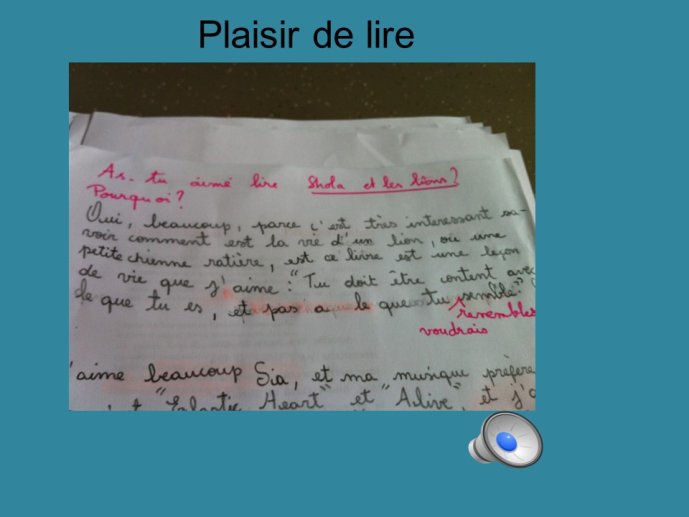 Plaisir de lire
As-tu aimé lire Shola et les lions?
Pourquoi?
Oui, beaucoup, parce c'est très interessant sa-
voir comment est la vie d'un lion, ou une
petite chienne ratière, est ce livre est une leçon
de vie que j'aime: "Tu doit être content avec
le que tu es, et pas a le que tu semble."
ressembles
voudrais
J'aime beaucoup Sia, et ma musique préfère
"Elastic Heart" et "Alive", et j'a